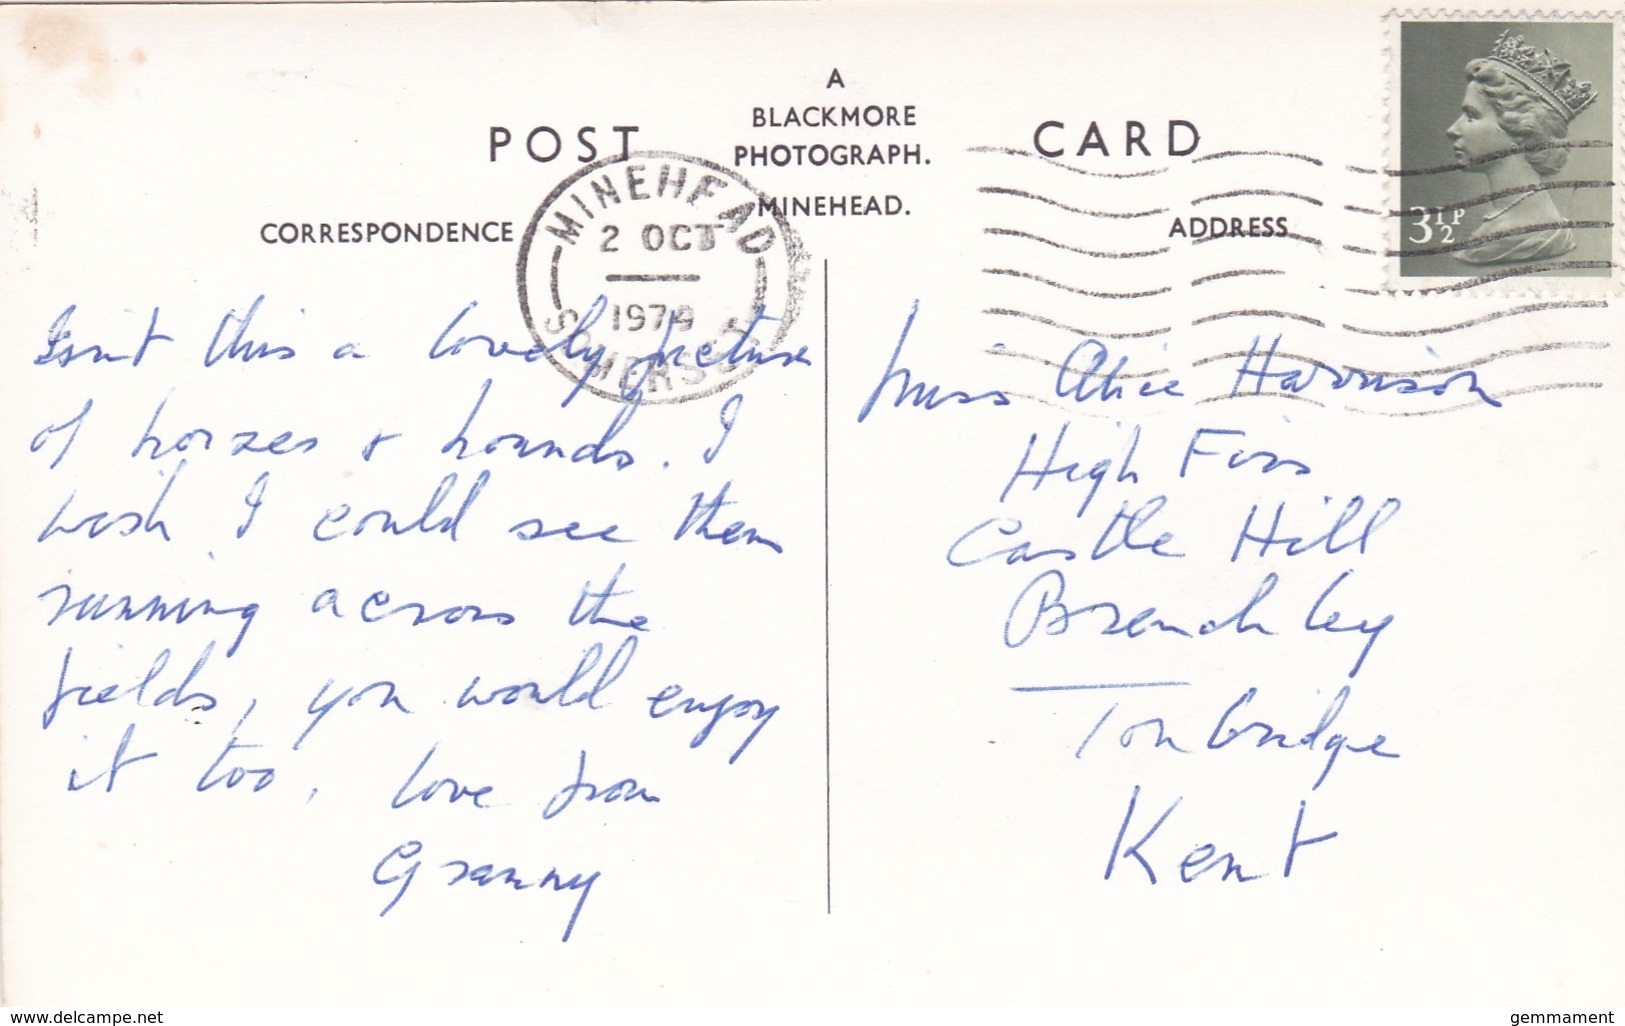 A
BLACKMORE
PHOTOGRAPH.
MINEHEAD.
POST CARD
CORRESPONDENCE
ADDRESS
MINEHEAD
2 OCT
197
SOMERSET
3½P
Isn't this a lovely picture
of horses & hounds. I
wish I could see them
running across the
fields, you would enjoy
it too, love from
Granny
Miss Alice Harrison
High Firs
Castle Hill
Brenchley
Tonbridge
Kent
www.delcampe.net
gemmament